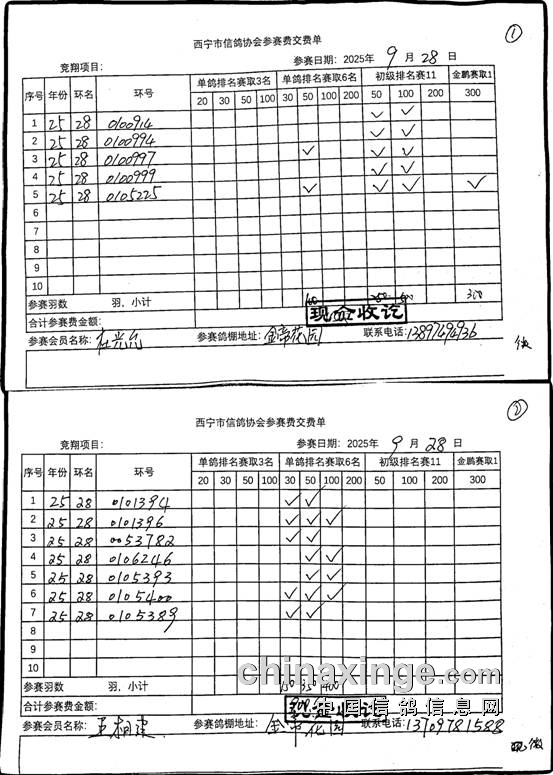 ①
西宁市信鸽协会参赛费交费单
竞翔项目： 参赛日期：2025年 9 月 28 日
序号 年份 环名 环号 单鸽排名赛取3名 单鸽排名赛取6名 初级排名赛11 金鹏赛取1
20 30 50 100 30 50 100 200 50 100 200 300
1 25 28 0100914 ✓ ✓
2 25 28 0100994 ✓ ✓
3 25 28 0100997 ✓ ✓ ✓
4 25 28 0100999 ✓ ✓
5 25 28 0105225 ✓ ✓ ✓ ✓
6
7
8
9
10
参赛羽数 羽，小计 100 250 500 300
合计参赛费金额： 现金收讫
参赛会员名称： 参赛鸽棚地址：金帝花园 联系电话：13897494936
②
西宁市信鸽协会参赛费交费单
竞翔项目： 参赛日期：2025年 9 月 28 日
序号 年份 环名 环号 单鸽排名赛取3名 单鸽排名赛取6名 初级排名赛11 金鹏赛取1
20 30 50 100 30 50 100 200 50 100 200 300
1 25 28 0101394 ✓ ✓
2 25 28 0101396 ✓ ✓ ✓
3 25 28 0053782 ✓ ✓
4 25 28 0106246 ✓ ✓
5 25 28 0105393 ✓ ✓
6 25 28 0105400 ✓ ✓ ✓
7 25 28 0105389 ✓ ✓
8
9
10
参赛羽数 羽，小计 150 350 400
chinaxinge.com
合计参赛费金额： 现金收讫
中国信鸽信息网
参赛会员名称：王相建 参赛鸽棚地址：金帝花园 联系电话：13709781588
现 微